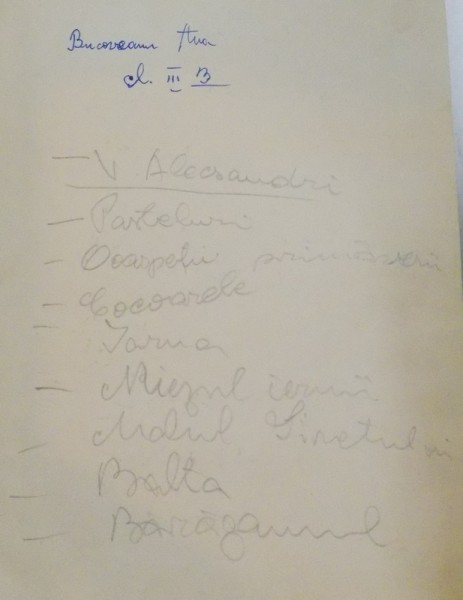 Bucoveanu Ana
cl. III B
— V Alecsandri
— Pasteluri
— Oaspeții primăverii
— Cocoarele
— Iarna
— Miezul iernii
— Malul Siretului
— Balta
— Bărăganul